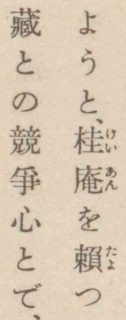 ようと、桂庵を賴つ
藏との競爭心とで、